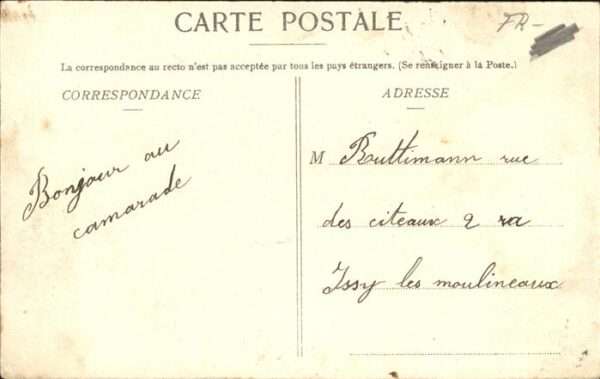 CARTE POSTALE
FR-
La correspondance au recto n'est pas acceptée par tous les pays étrangers. (Se renseigner à la Poste.)
CORRESPONDANCE
ADRESSE
Bonjour au
camarade
M Buttimann rue
des citeaux 2
Issy les moulineaux